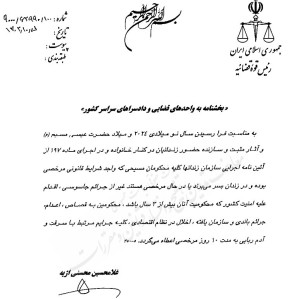 بسم الله الرحمن الرحیم
جمهوری اسلامی ایران
رئیس قوهٔ قضائیه
شماره: ۹۰۰۰/
تاریخ:
پیوست:
طبقه‌بندی:
«بخشنامه به واحدهای قضایی و دادسراهای سراسر کشور»
به مناسبت فرا رسیدن سال نو میلادی ۲۰۲۴ و میلاد حضرت عیسی مسیح (ع)
و آثار مثبت و سازنده حضور زندانیان در کنار خانواده و در اجرای ماده ۱۹۷ از
آئین نامه اجرایی سازمان زندانها کلیه محکومان مسیحی که واجد شرایط قانونی مرخصی
بوده و در زندان بسر می‌برند یا در حال مرخصی هستند غیر از جرائم جاسوسی، اقدام
علیه امنیت کشور که محکومیت آنان بیش از ۲ سال باشد، محکومین به قصاص، اعدام،
جرائم باندی و سازمان یافته، اخلال در نظام اقتصادی، کلیه جرایم مرتبط با سرقت و
آدم ربایی به مدت ۱۰ روز مرخصی اعطاء می‌گردد.
غلامحسین محسنی اژیه